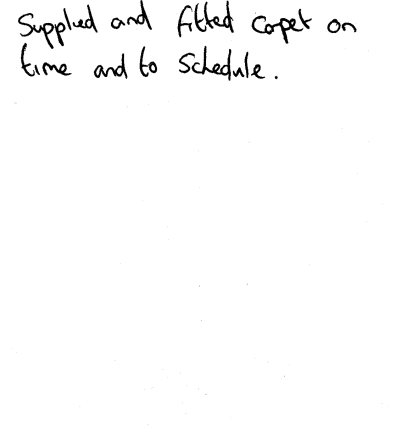 Supplied and fitted carpet on
time and to schedule.